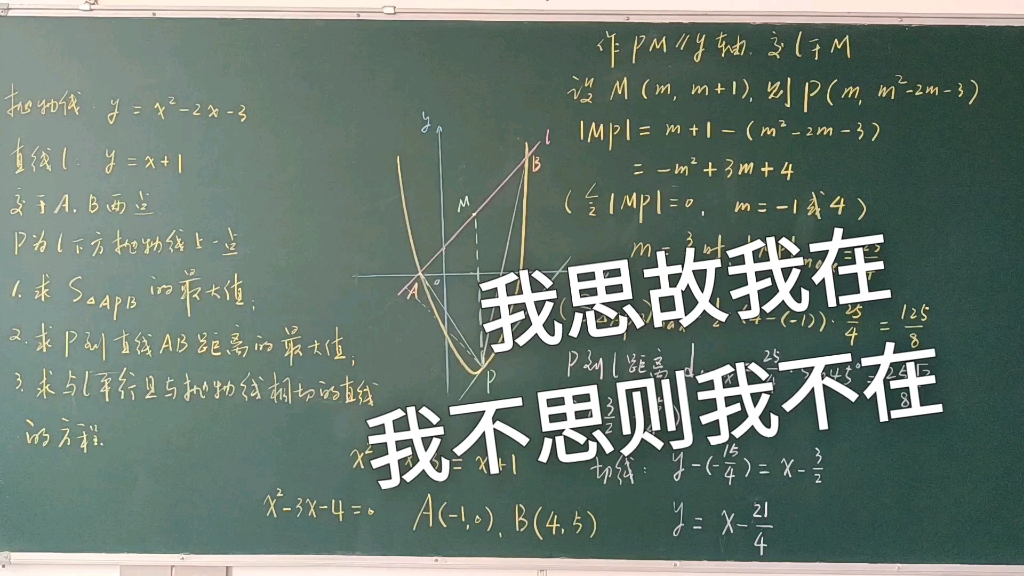 抛物线 y = x²-2x-3
直线l: y = x+1
交于A.B两点
P为l下方抛物线上一点
1.求 S△APB 的最大值;
2.求P到直线AB距离的最大值;
3.求与l平行且与抛物线相切的直线
的方程.
y
l
B
M
A
o
P
x²
= x+1
x²-3x-4=0
A(-1,0), B(4,5)
作PM∥y轴.交l于M
设 M(m, m+1), 则P(m, m²-2m-3)
|MP| = m+1-(m²-2m-3)
= -m²+3m+4
(当|MP|=0, m=-1或4)
= 125/8
P到l距离d
切线: y-(-15/4) = x-3/2
y = x-21/4
我思故我在
我不思则我不在